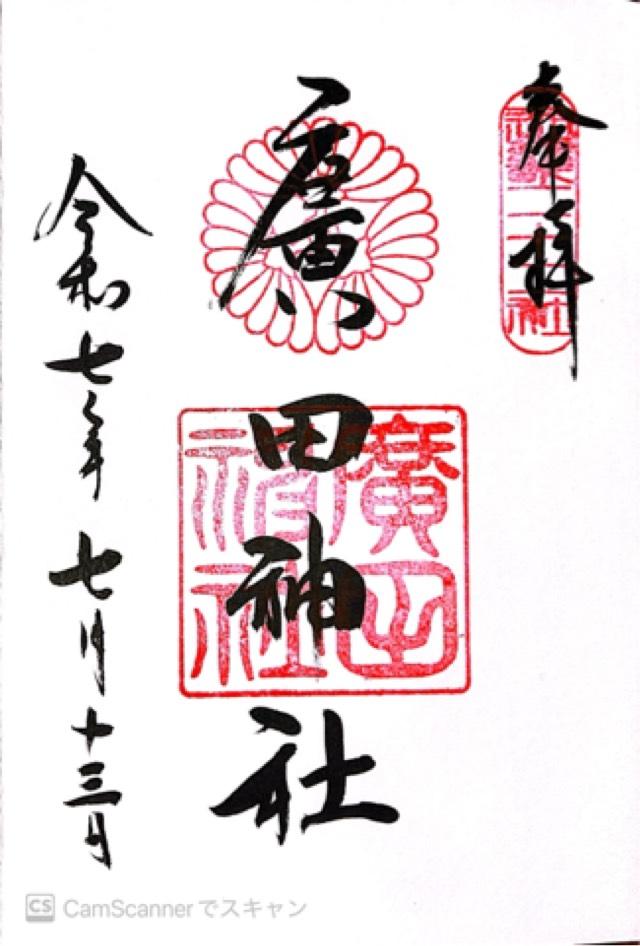 奉拝
二十二社
廣田神社
廣田神社
令和七年七月十三日
CS CamScannerでスキャン